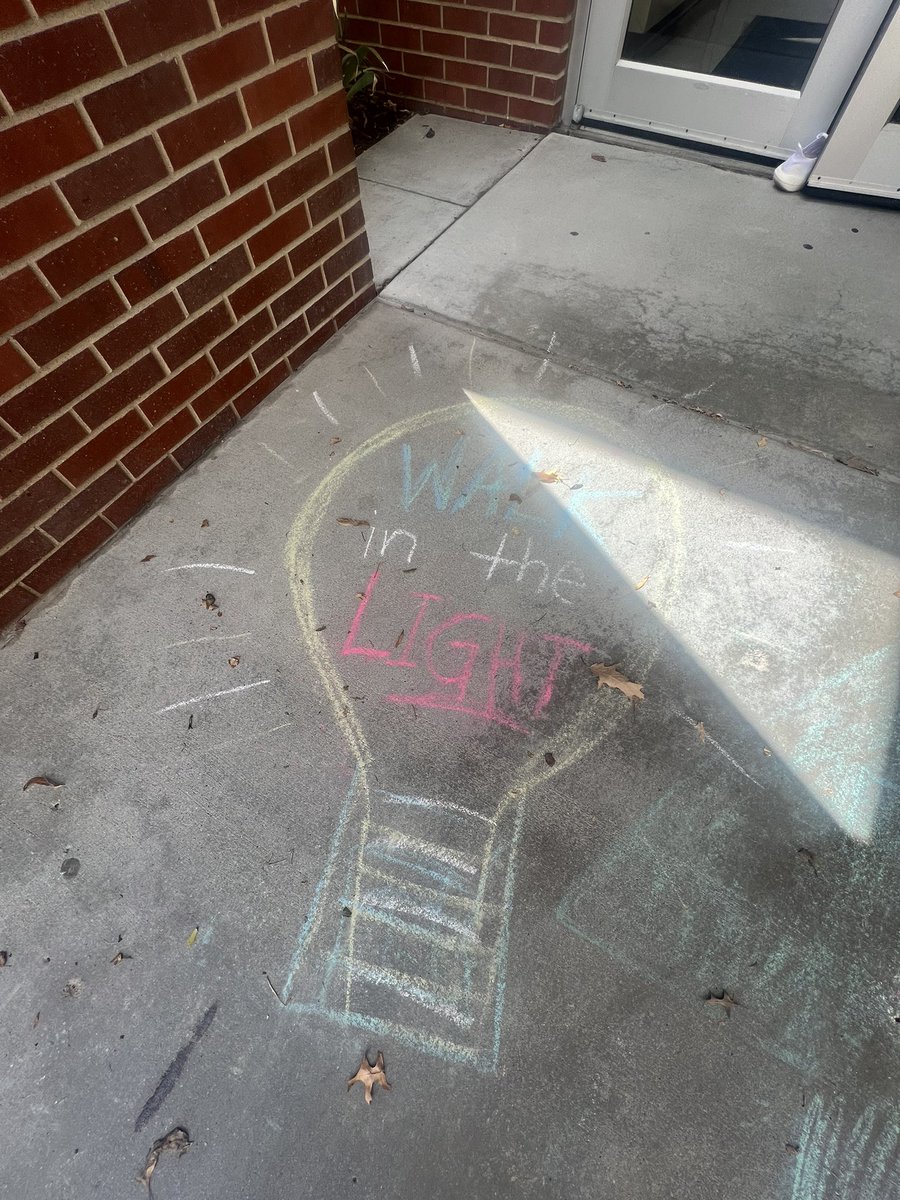 WALK
in the
LIGHT